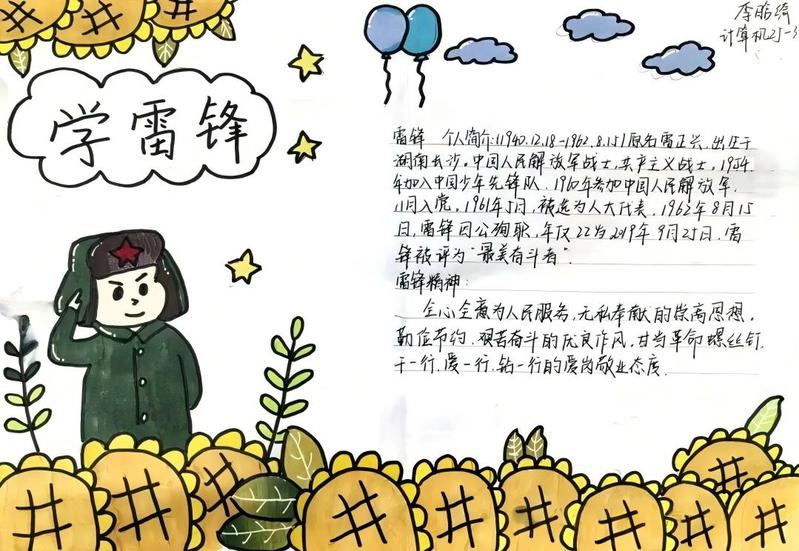 学雷锋
李晗绮
计算机21-3
雷锋 个人简介:(1940.12.18-1962.8.15)原名雷正兴,出生于
湖南长沙。中国人民解放军战士,共产主义战士。1954
年加入中国少年先锋队,1960年参加中国人民解放军,
11月入党。1961年5月,被选为人大代表,1962年8月15
日,雷锋因公殉职,年仅22岁2019年9月25日,雷
锋被评为“最美奋斗者”.
雷锋精神:
全心全意为人民服务,无私奉献的崇高思想。
勤俭节约,艰苦奋斗的优良作风,甘当革命螺丝钉,
干一行,爱一行,钻一行的爱岗敬业态度.